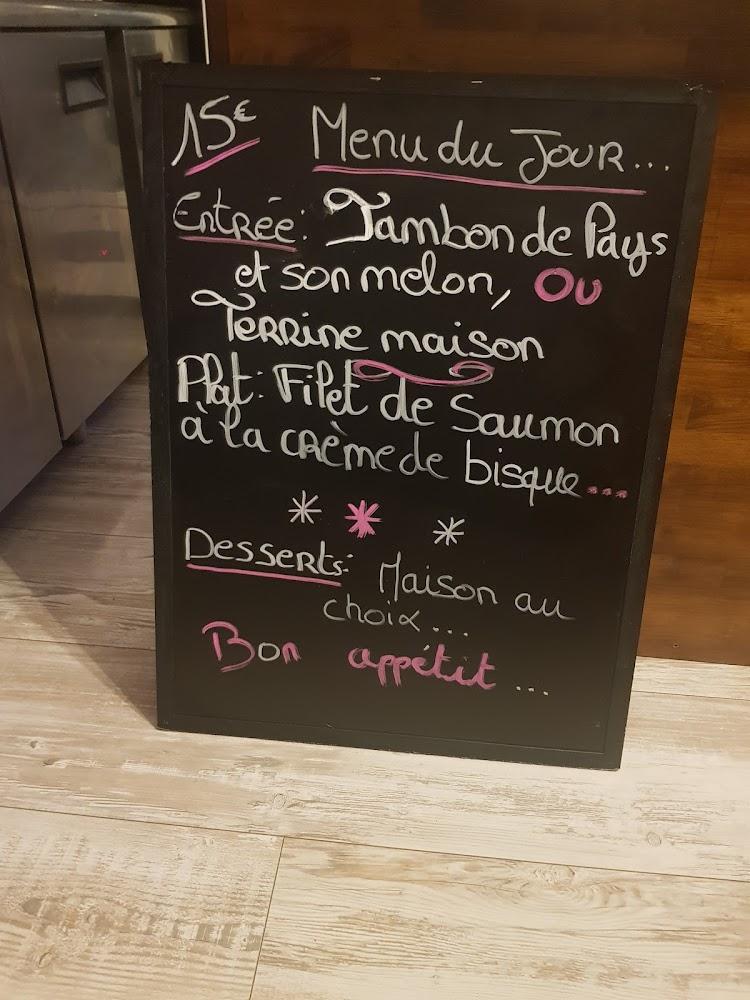 15€ Menu du Jour...
Entrée: Jambon de Pays
et son melon, Ou
Terrine maison
Plat: Filet de Saumon
à la crème de bisque...
Desserts: Maison au
choix...
Bon appétit...